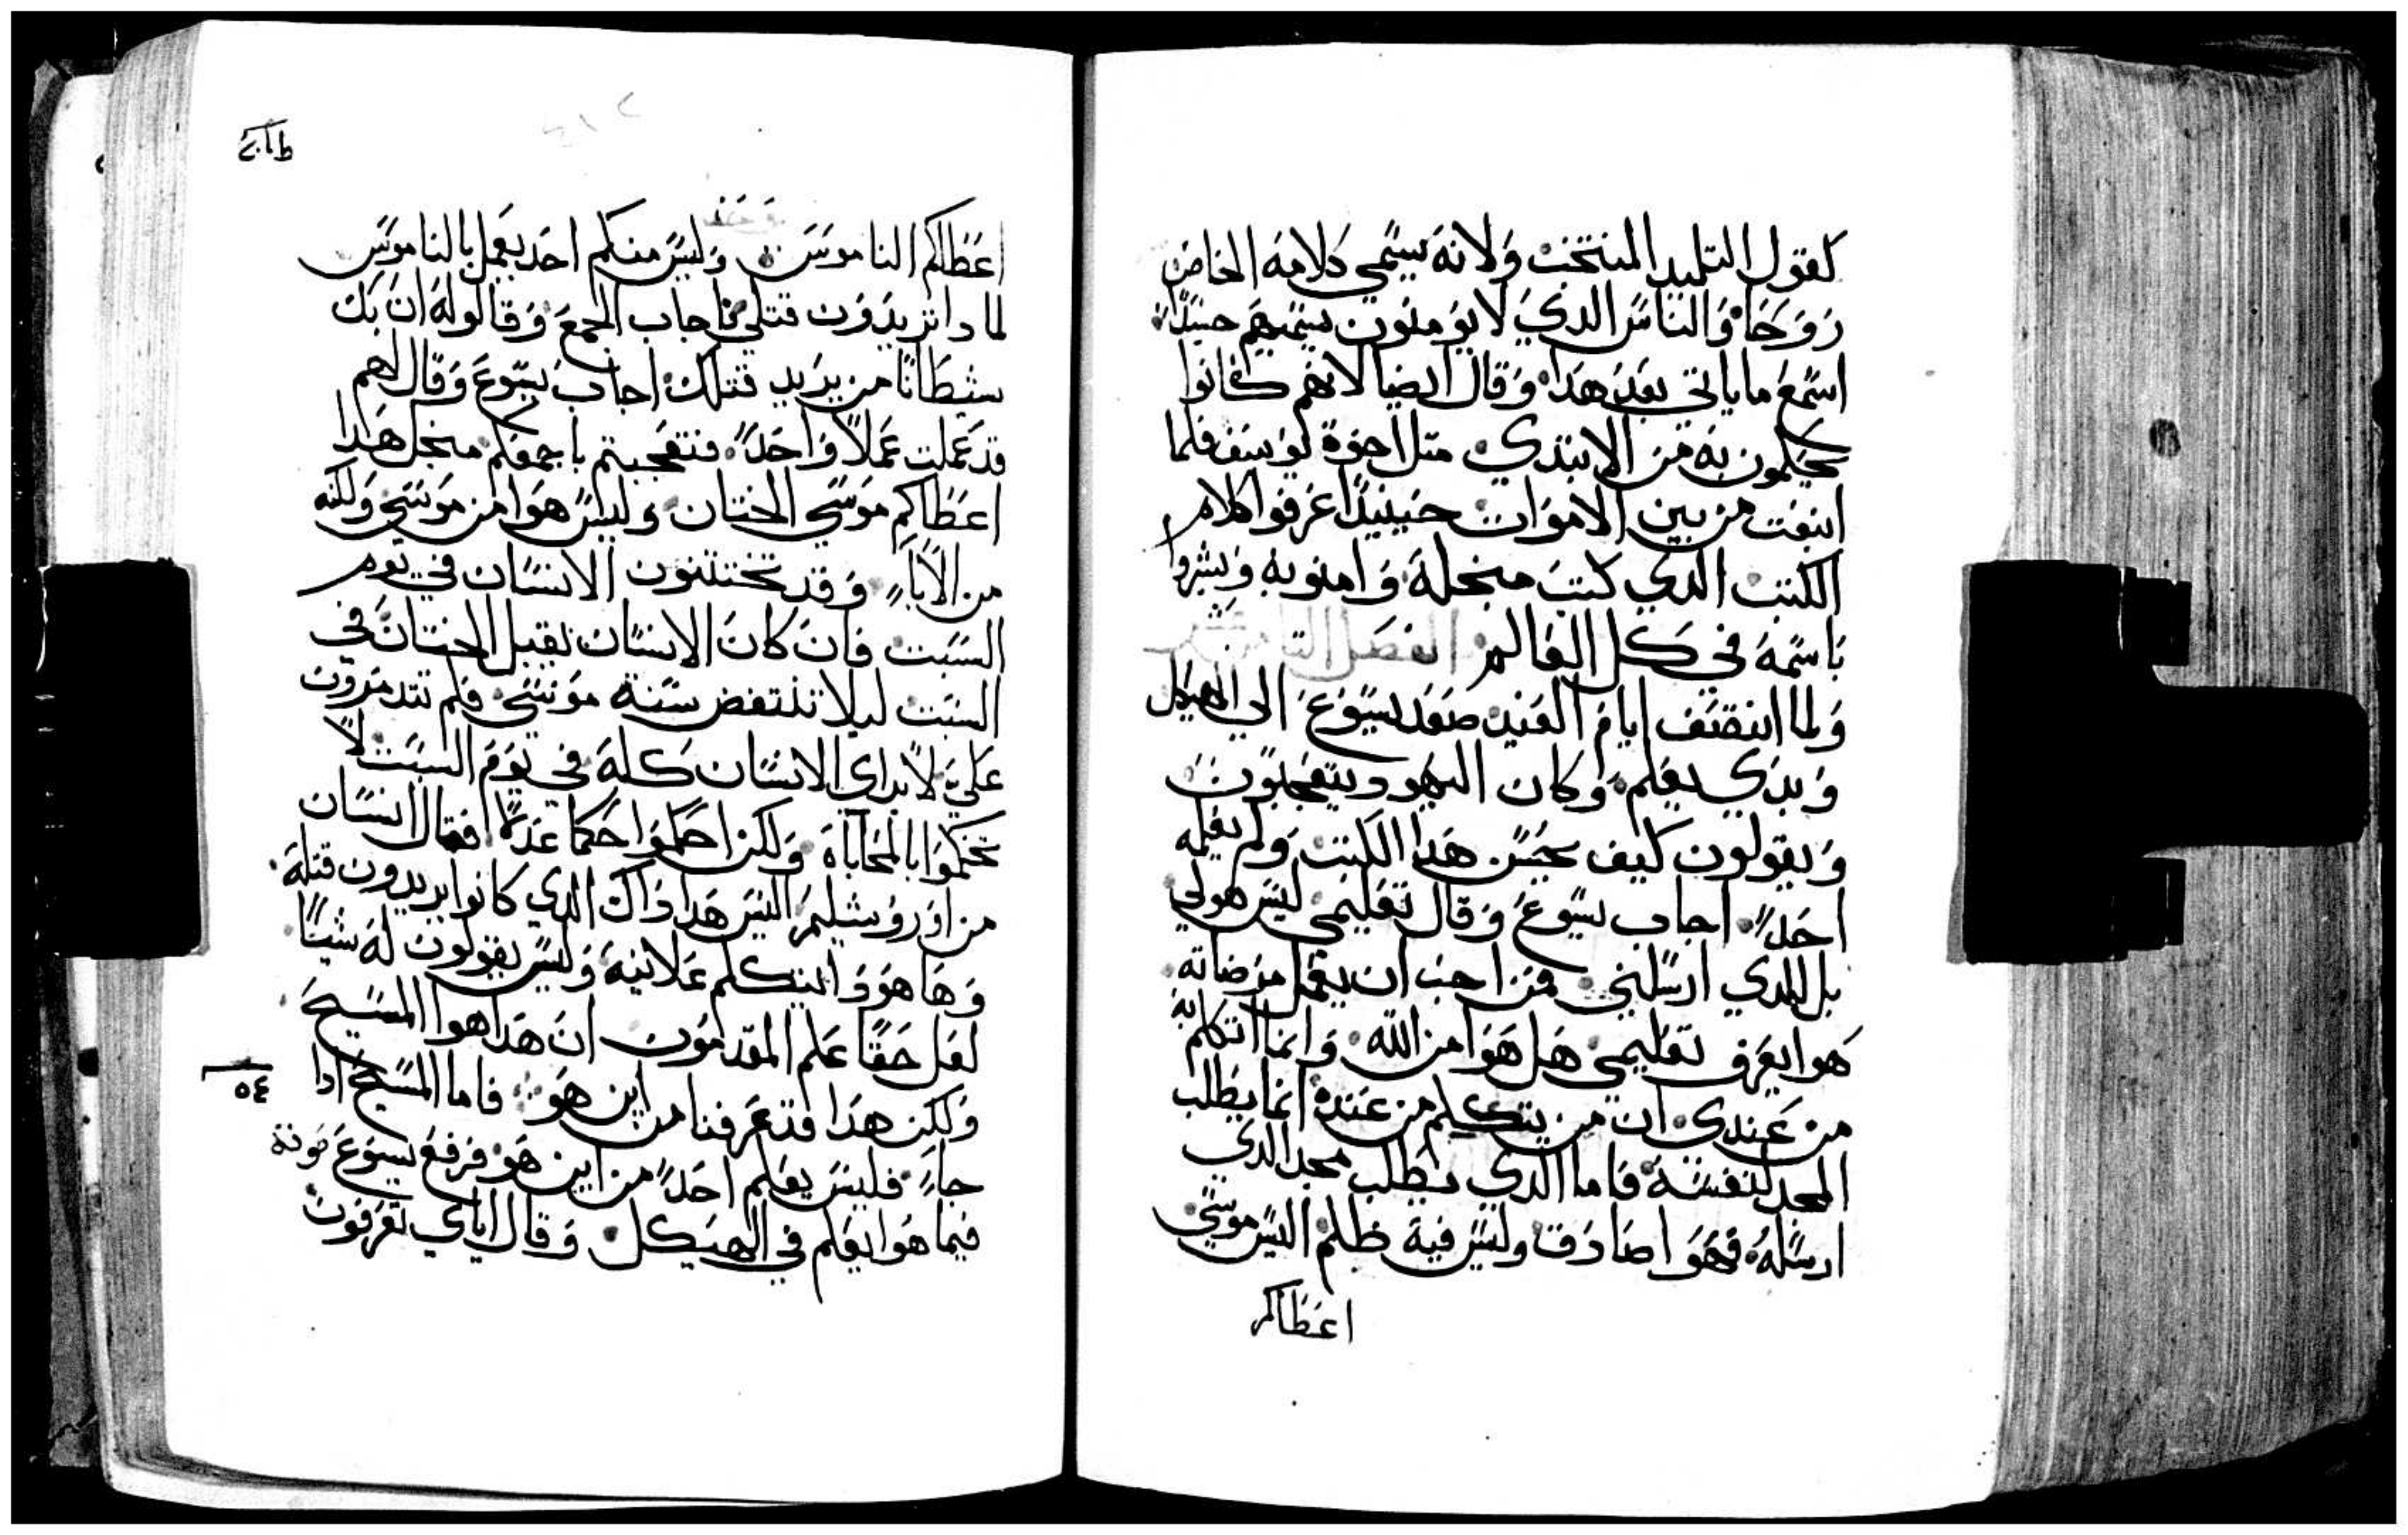 كقول التلميد المنتخب ولانه يسمي كلامه الخاص
روحا والناس الدي لا يومنون يسميهم جسدا
اسمع ما ياتي بعد هدا وقال ايضا لانهم كانوا
يحلمون به من الابتدي متل اخوة يوسف فلما
انبعت من بين الاموات حينيدا عرفوا كلام
الكتب الدي كتب منجله وامنو به وبشروا
باسمه في كل العالم الفصل
ولما انتصف ايام العيد صعد يسوع الي الهيكل
وبدي يعلم وكان اليهود يتعجبون
ويقولون كيف يحسن هدا الكتب ولم يعلمه
احدا اجاب يسوع وقال تعليمي ليس هو لي
بل للدي ارسلني فمن احب ان يعمل مرضاته
هوا يعرف تعليمي هل هوا من الله وانما اتكلم به
من عندي ان من يتكلم من عنده انما يطلب
المجد لنفسه فاما الدي يطلب مجد الدي
ارسله فهوا صادق وليس فيه ظلم اليس موسي
اعطاكم
اعطاكم الناموس وليس منكم احد يعمل بالناموس
لمادا تريدون قتلي اجاب الجمع وقالو له ان بك
شيطانا من يريد قتلك اجاب يسوع وقال لهم
قد عملت عملا واحدا فتعجبتم باجمعكم منجل هدا
اعطاكم موسي الختان وليس هوا من موسي ولكنه
من الابا وقد تختتنون الانسان في يوم
السبت فان كان الانسان يقبل الختان في
السبت ليلا تنتقض سنة موسي فلم تتدمرون
علي لابراي الانسان كله في يوم السبت لا
تحكموا بالمحاباه ولكن احكموا حكما عدلا فقال انسان
من اورشليم اليس هدا داك الدي كانوا يريدون قتله
وها هودا يتكلم علانيه وليس يقولون له شيا
لعل حقا علم المقدمون ان هدا هوا المسيح
ولكن هدا قد عرفنا من اين هو فاما المسيح ادا
٥٤
جا فليس يعلم احدا من اين هو فرفع يسوع صوته
فيما هوا يعلم في الهيكل وقال اياي تعرفون